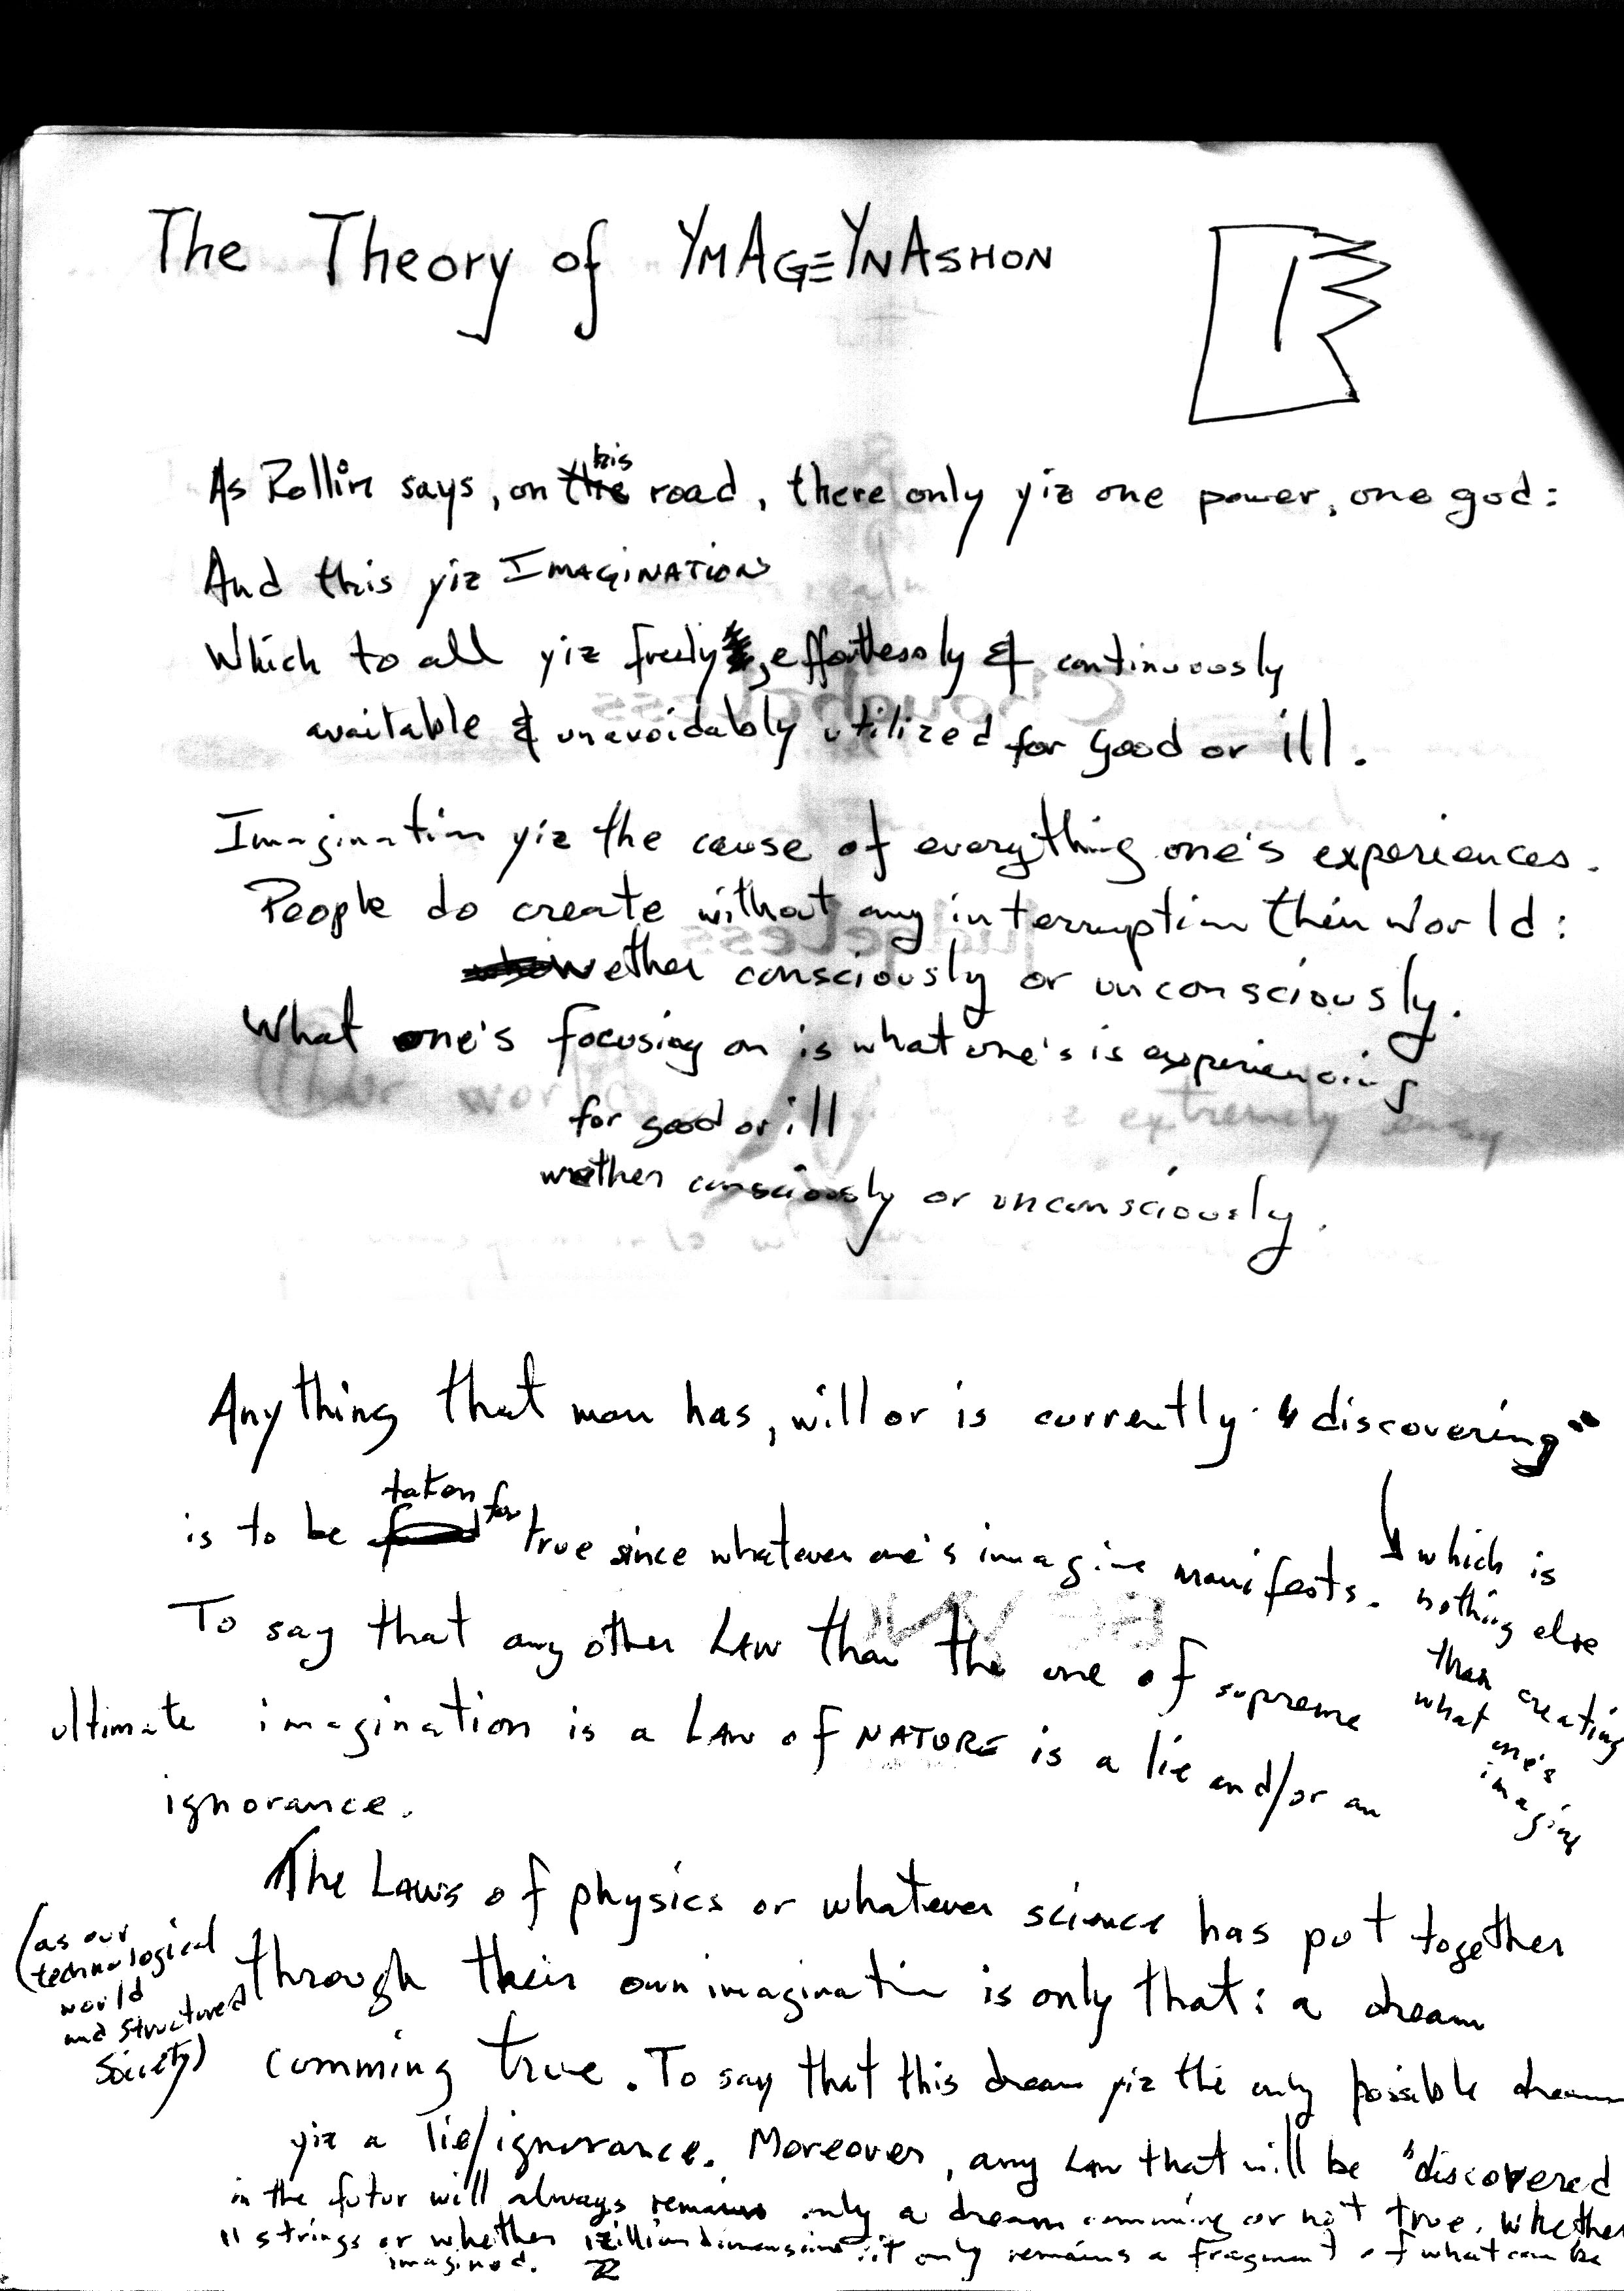 The Theory of YMAGEYNASHON
As Rollin says, on his road, there only yiz one power, one god:
And this yiz IMAGINATION
Which to all yiz freely, effortlessly & continuously
available & unavoidably utilized for good or ill.
Imagination yiz the cause of everything one's experiences.
People do create without any interruption their world:
wether consciously or unconsciously.
What one's focusing on is what one's is experiencing
for good or ill
wether consciously or unconsciously.
Anything that man has, will or is currently "discovering"
is to be taken for true since whatever one's imagine manifests.
which is
nothing else
than creating
what one's
imagine
To say that any other LAW than the one of supreme
ultimate imagination is a LAW of NATURE is a lie and/or an
ignorance.
The LAWS of physics or whatever science has put together
(as our
technological
world
and structured
society)
through their own imagination is only that: a dream
comming true. To say that this dream yiz the only possible dream
yiz a lie/ignorance. Moreover, any LAW that will be "discovered
in the futur will always remains only a dream comming or not true. Whether
11 strings or whether 1zillion dimensions: it only remains a fragment of what can be
imagined.